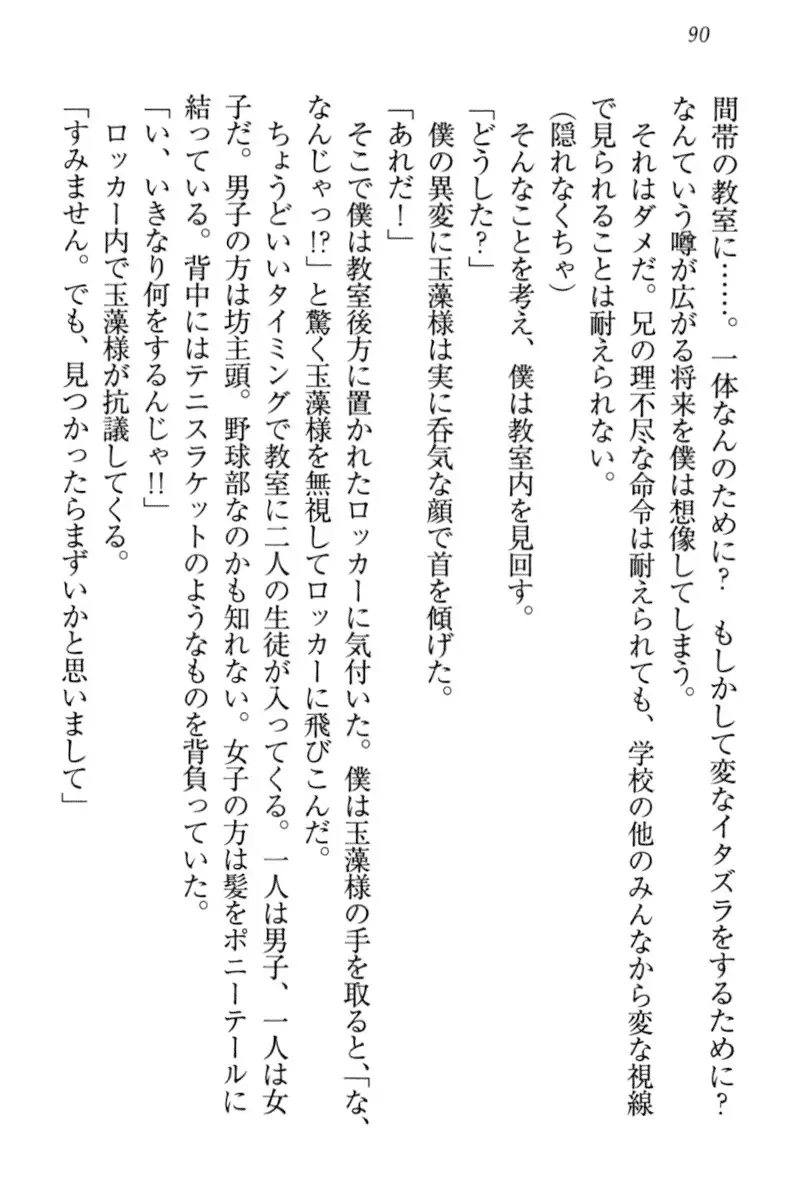 90
間帯の教室に……。一体なんのために？　もしかして変なイタズラをするために？
なんていう噂が広がる将来を僕は想像してしまう。
　それはダメだ。兄の理不尽な命令は耐えられても、学校の他のみんなから変な視線
で見られることは耐えられない。
（隠れなくちゃ）
　そんなことを考え、僕は教室内を見回す。
「どうした？」
　僕の異変に玉藻様は実に呑気な顔で首を傾げた。
「あれだ！」
　そこで僕は教室後方に置かれたロッカーに気付いた。僕は玉藻様の手を取ると、「な、
なんじゃっ!?」と驚く玉藻様を無視してロッカーに飛びこんだ。
　ちょうどいいタイミングで教室に二人の生徒が入ってくる。一人は男子、一人は女
子だ。男子の方は坊主頭。野球部なのかも知れない。女子の方は髪をポニーテールに
結っている。背中にはテニスラケットのようなものを背負っていた。
「い、いきなり何をするんじゃ!!」
　ロッカー内で玉藻様が抗議してくる。
「すみません。でも、見つかったらまずいかと思いまして」